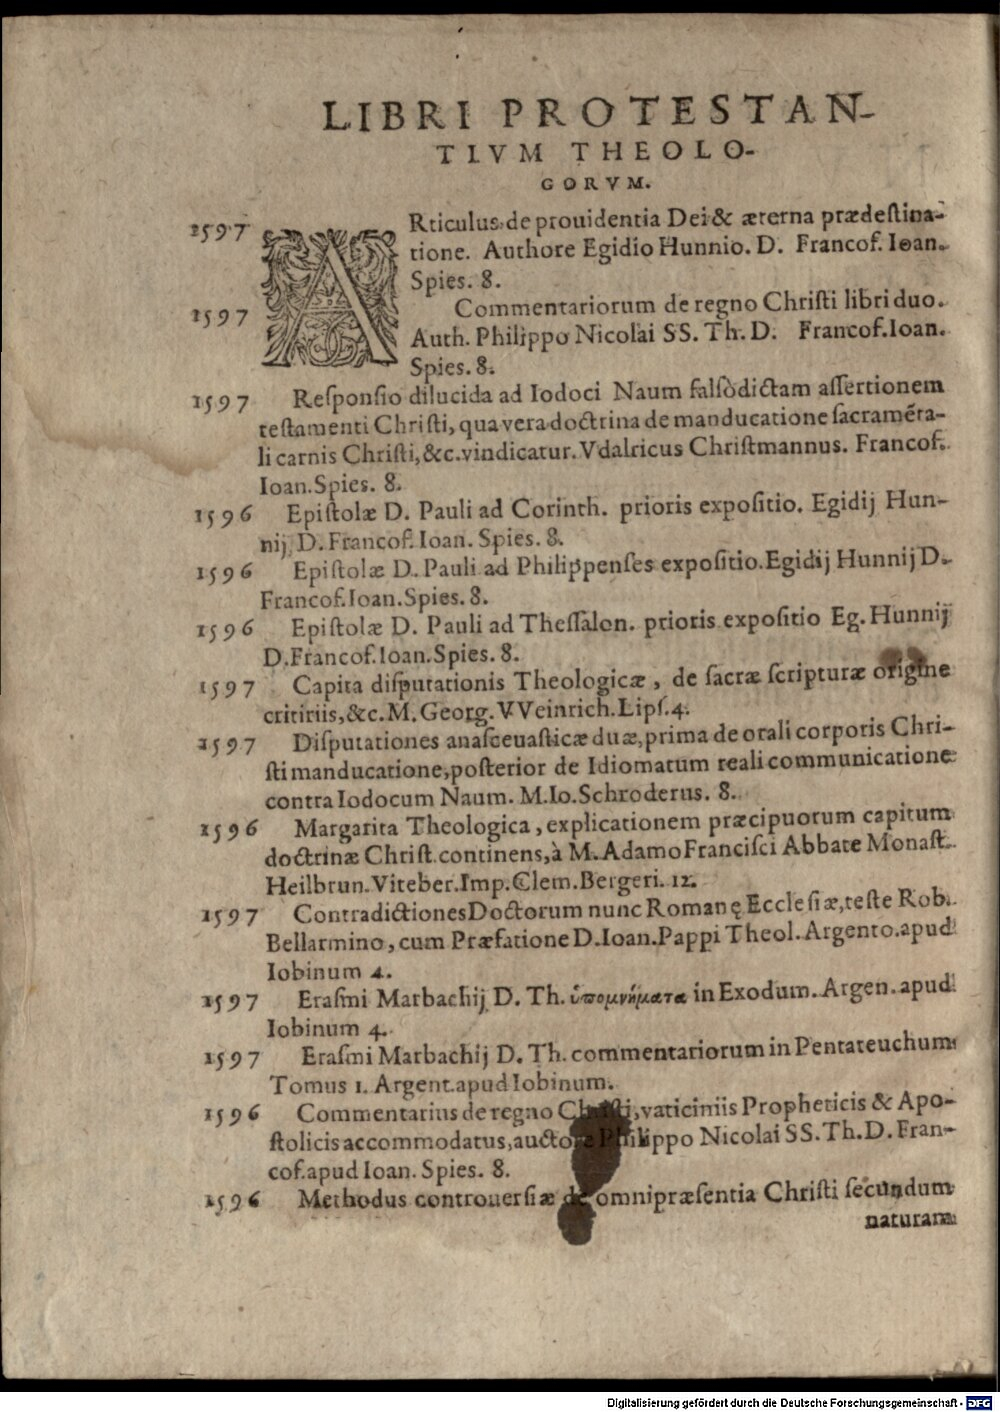 LIBRI PROTESTAN-
TIVM THEOLO-
GORVM.
1597 ARticulus de prouidentia Dei & æterna prædestina-
tione. Authore Egidio Hunnio. D. Francof. Ioan.
Spies. 8.
1597 Commentariorum de regno Christi libri duo.
Auth. Philippo Nicolai SS. Th. D. Francof. Ioan.
Spies. 8.
1597 Responsio dilucida ad Iodoci Naum falsò dictam assertionem
testamenti Christi, qua vera doctrina de manducatione sacramẽta-
li carnis Christi, &c. vindicatur. Vdalricus Christmannus. Francof.
Ioan. Spies. 8.
1596 Epistolæ D. Pauli ad Corinth. prioris expositio. Egidij Hun-
nij, D. Francof. Ioan. Spies. 8.
1596 Epistolæ D. Pauli ad Philippenses expositio. Egidij Hunnij D.
Francof. Ioan. Spies. 8.
1596 Epistolæ D. Pauli ad Thessalon. prioris expositio Eg. Hunnij
D. Francof. Ioan. Spies. 8.
1597 Capita disputationis Theologicæ, de sacræ scripturæ origine
critiriis, &c. M. Georg. VVeinrich. Lips. 4.
1597 Disputationes anasceuasticæ duæ, prima de orali corporis Chri-
sti manducatione, posterior de Idiomatum reali communicatione
contra Iodocum Naum. M. Io. Schroderus. 8.
1596 Margarita Theologica, explicationem præcipuorum capitum
doctrinæ Christ. continens, à M. Adamo Francisci Abbate Monast.
Heilbrun. Viteber. Imp. Clem. Bergeri. 12.
1597 Contradictiones Doctorum nunc Romanę Ecclesiæ, teste Rob.
Bellarmino, cum Præfatione D. Ioan. Pappi Theol. Argento. apud
Iobinum 4.
1597 Erasmi Marbachij D. Th. ὑπομνήματα in Exodum. Argen. apud
Iobinum 4.
1597 Erasmi Marbachij D. Th. commentariorum in Pentateuchum
Tomus 1. Argent. apud Iobinum.
1596 Commentarius de regno Christi, vaticiniis Propheticis & Apo-
stolicis accommodatus, auctore Philippo Nicolai SS. Th. D. Fran-
cof. apud Ioan. Spies. 8.
1596 Methodus controuersiæ de omnipræsentia Christi secundum
naturam
Digitalisierung gefördert durch die Deutsche Forschungsgemeinschaft - DFG